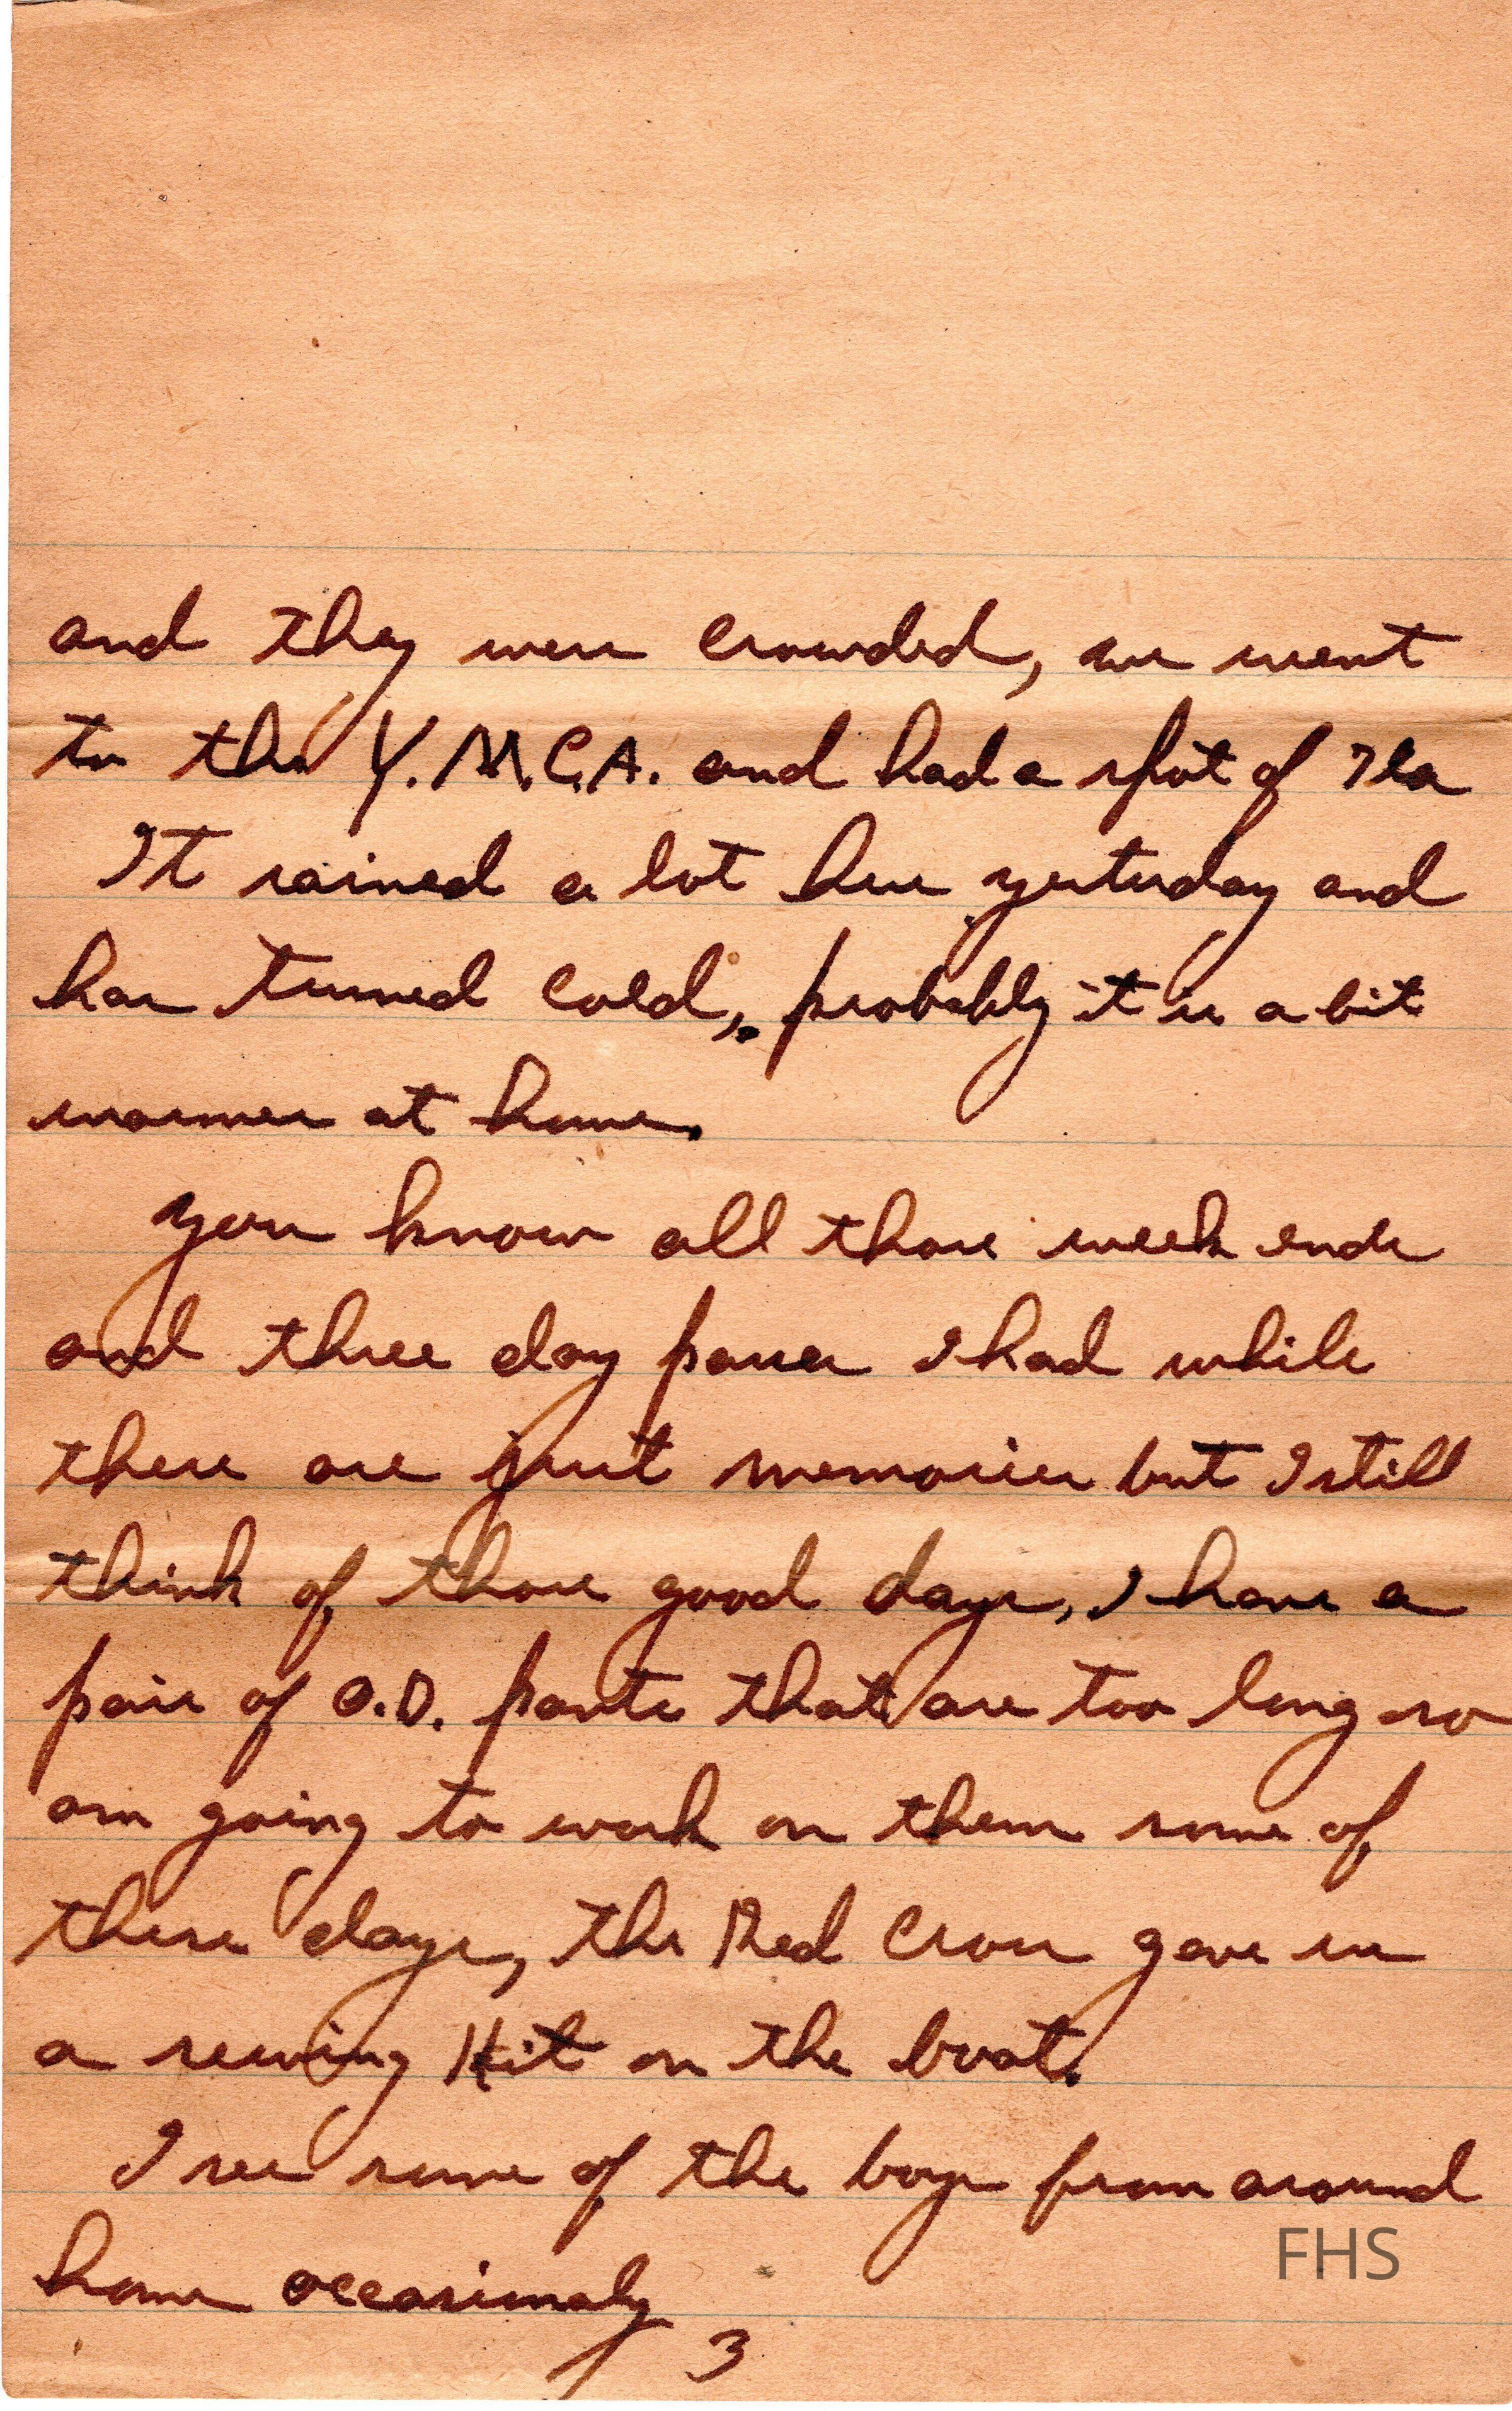 and they were crowded, we went
to the Y.M.C.A. and had a spot of Tea
It rained a lot here yesterday and
has turned cold, probably it is a bit
warmer at home.
you know all those week ends
and three day passes I had while
there are just memories but I still
think of those good days, I have a
pair of O.D. pants that are too long so
am going to work on them some of
these days, the Red Cross gave us
a sewing Kit on the boat.
I see some of the boys from around
home occasionaly
3
FHS